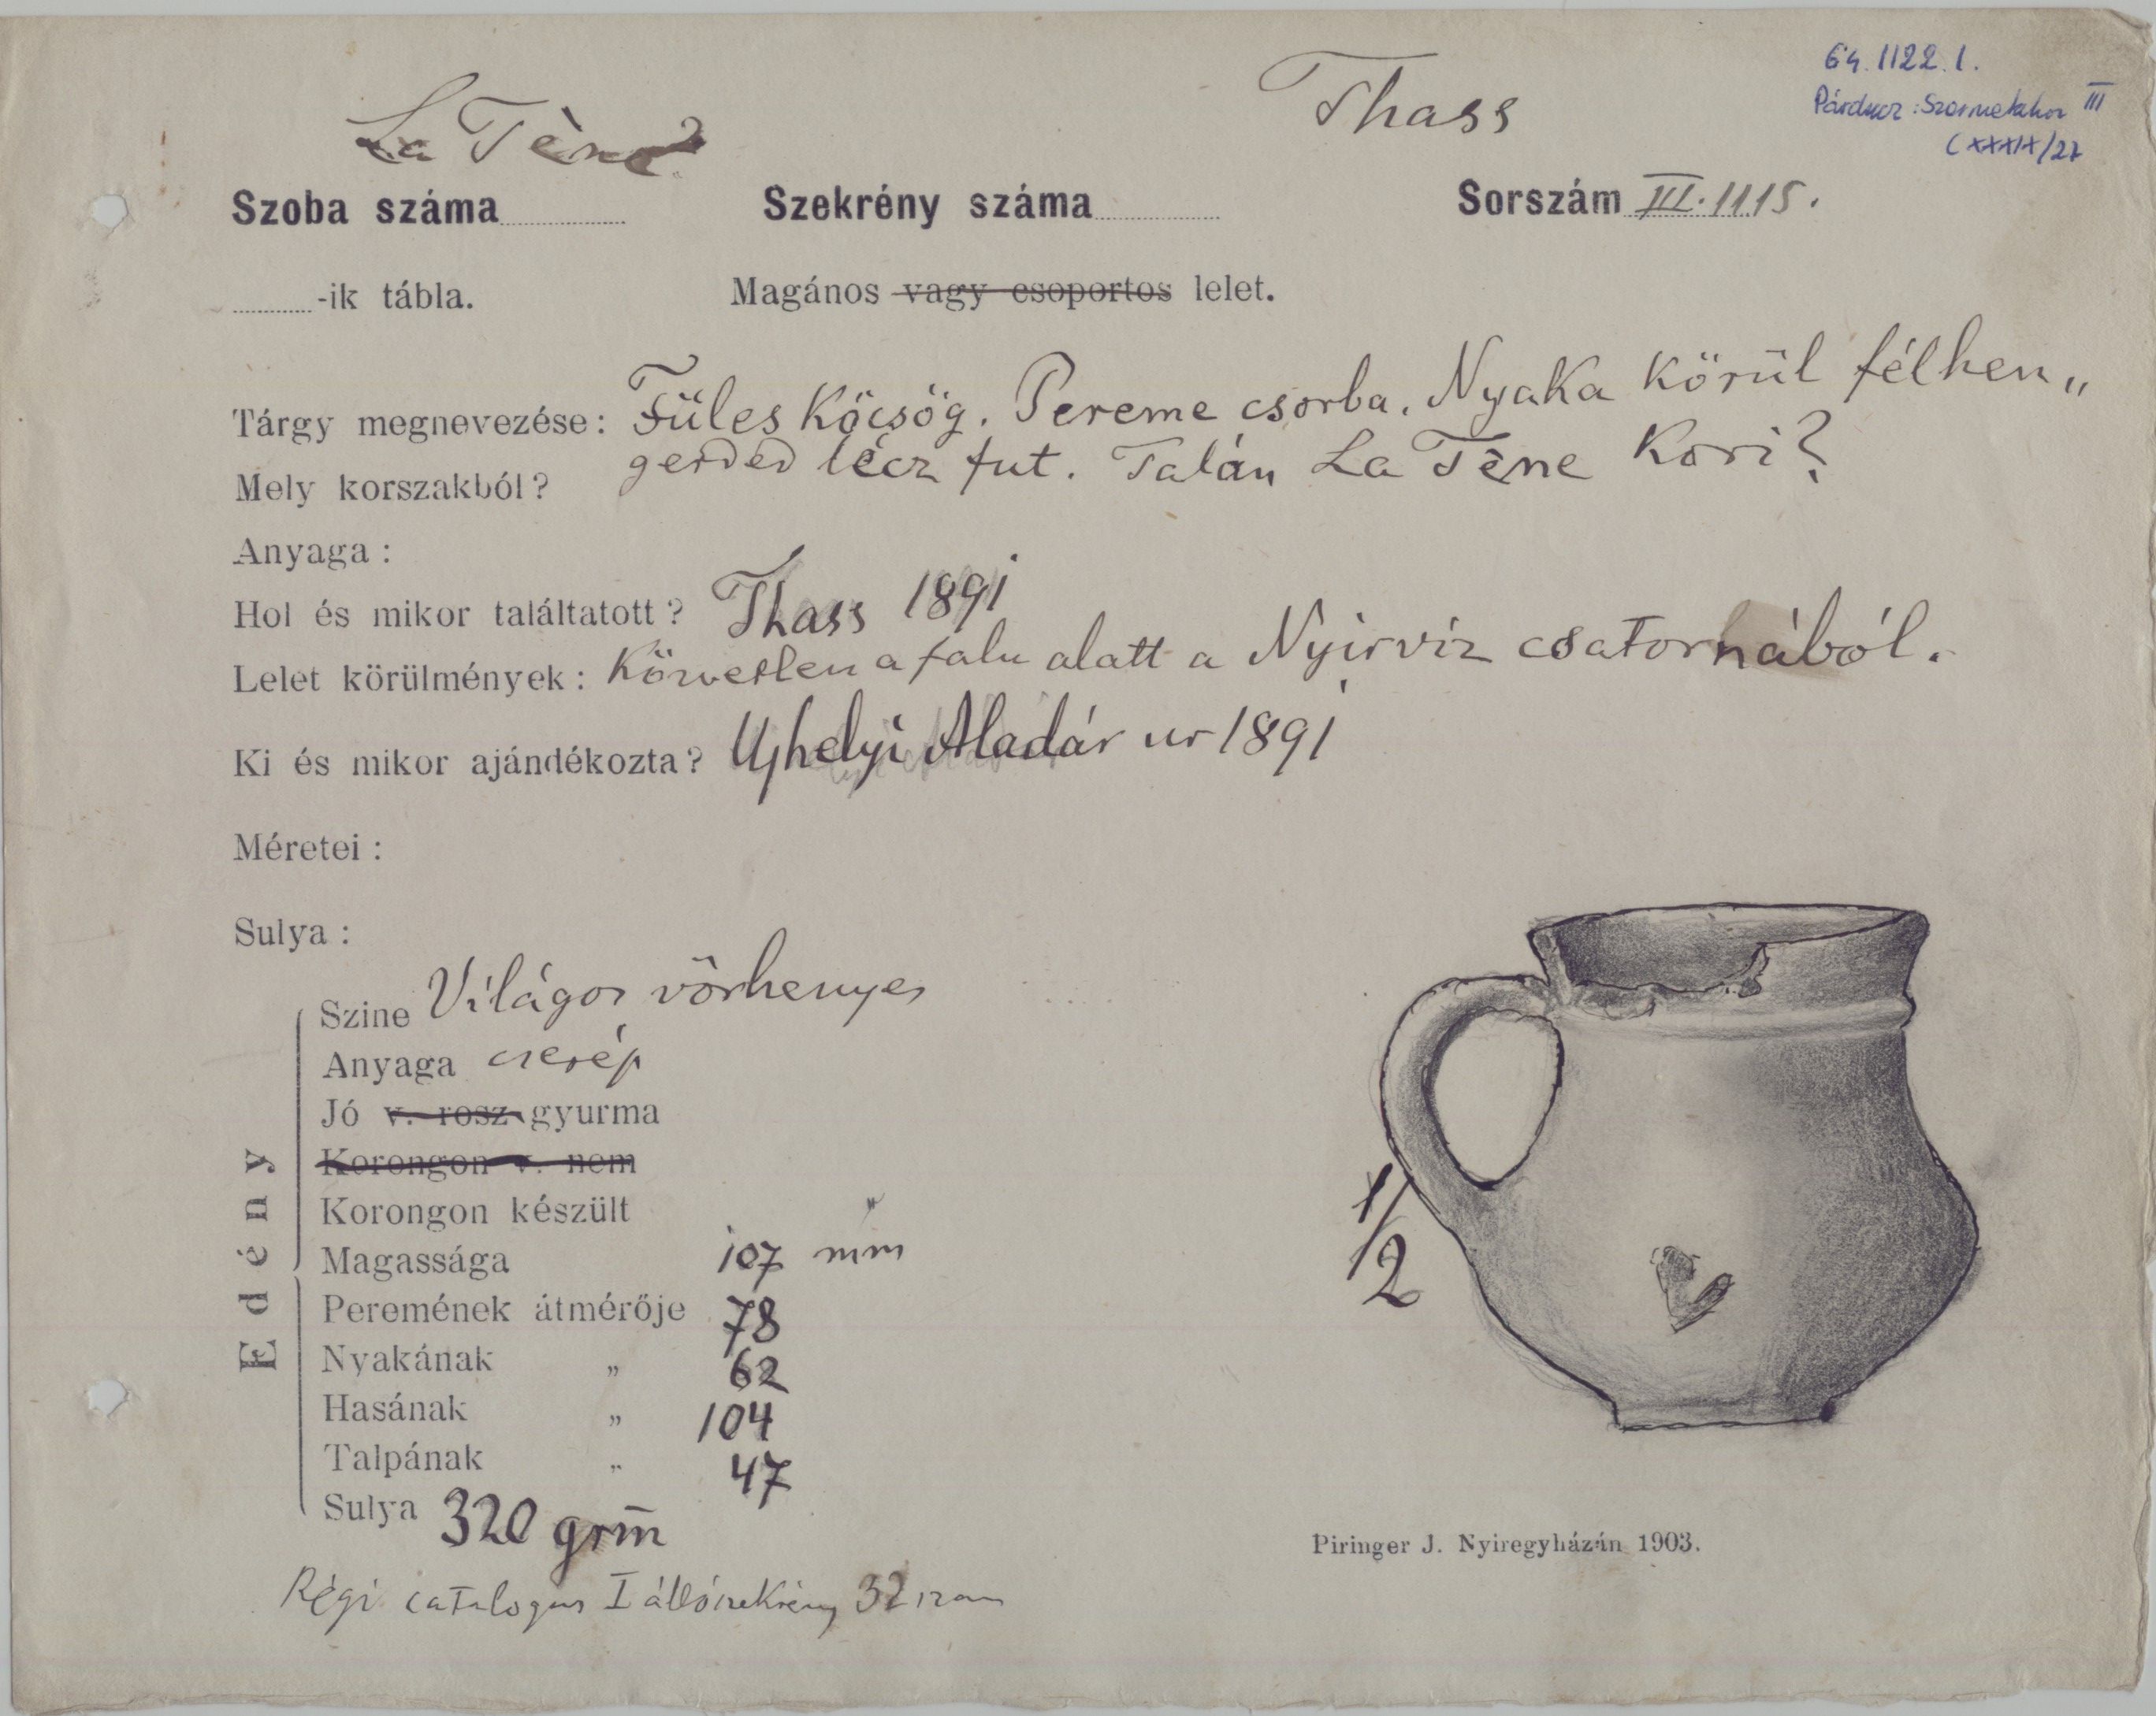 64.1122.1.
Párducz: Szarmatakor III
(XXXIX/27
La Tène?
Thass
Szoba száma
Szekrény száma
Sorszám III.1115.
-ik tábla.
Magános vagy csoportos lelet.
Tárgy megnevezése: Füles köcsög. Pereme csorba. Nyaka körül félhen„
Mely korszakból? gerded lécz fut. Talán La Tène kori?
Anyaga:
Hol és mikor találtatott? Thass 1891
Lelet körülmények: Közvetlen a falu alatt a Nyirviz csatornából.
Ki és mikor ajándékozta? Ujhelyi Aladár ur 1891
Méretei:
Sulya:
Edény
Szine Világos vörhenyes
Anyaga cserép
Jó v. rosz gyurma
Korongon v. nem
Korongon készült
Magassága 107 mm
Peremének átmérője 78
Nyakának „ 62
Hasának „ 104
Talpának „ 47
Sulya 320 grm
1/2
Piringer J. Nyiregyházán 1903.
Régi catalogus I állószekrény 32 szam